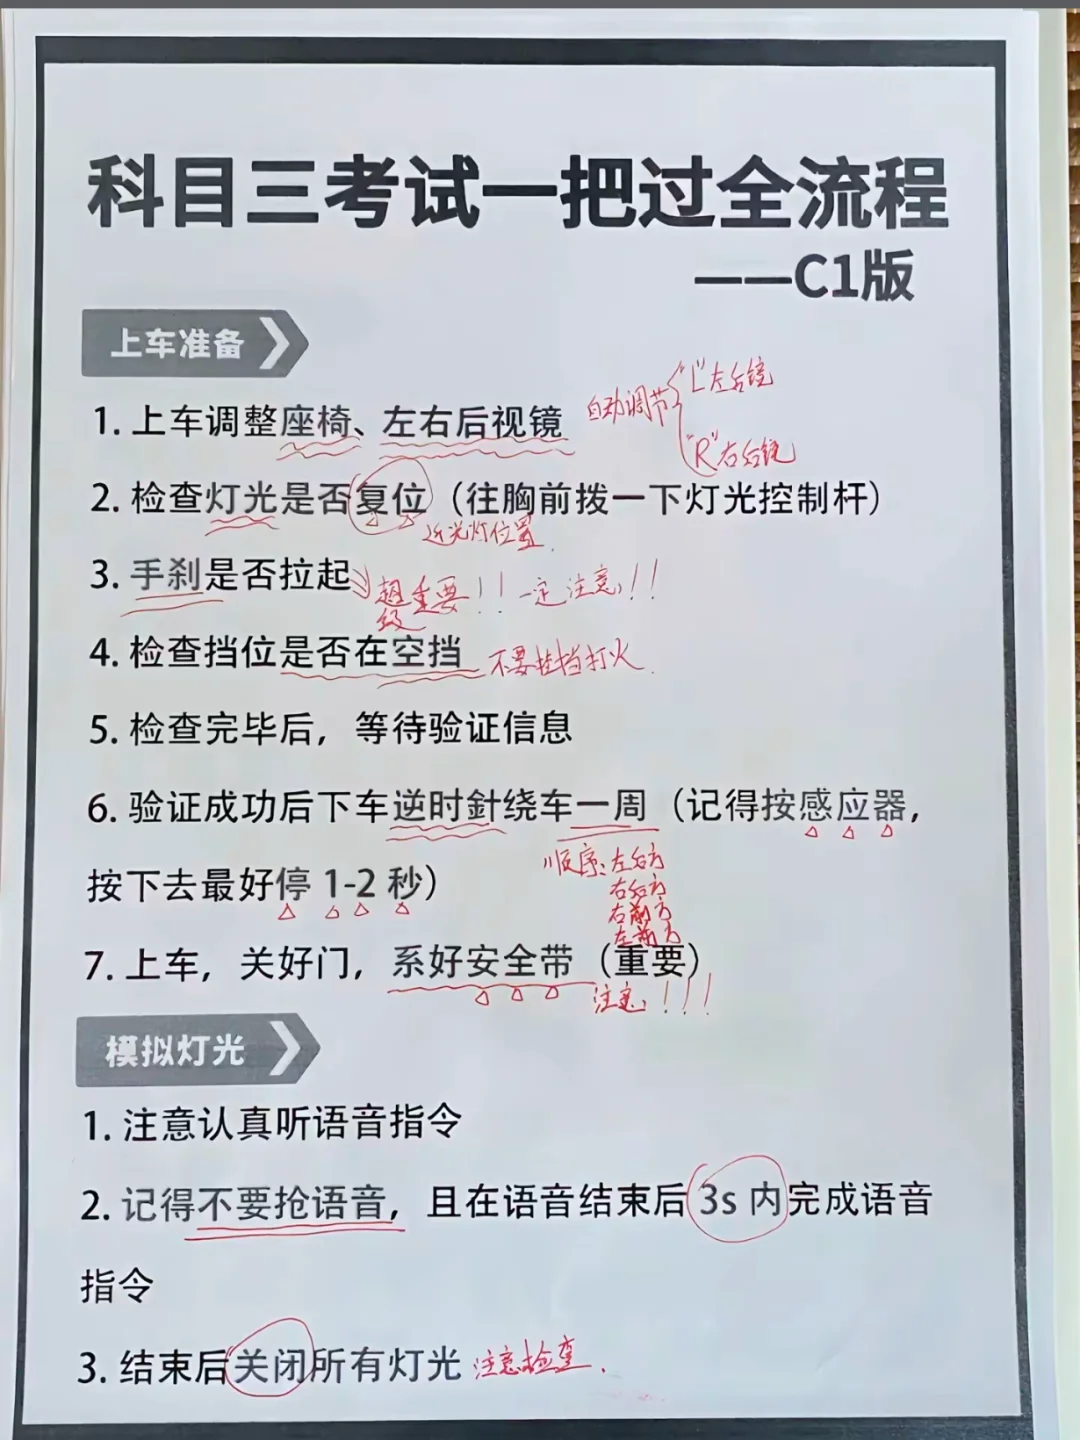 科目三考试一把过全流程
——C1版
上车准备
1. 上车调整座椅、左右后视镜
自动调节
"L"左后镜
"R"右后镜
2. 检查灯光是否复位（往胸前拨一下灯光控制杆）
近光灯位置.
3. 手刹是否拉起
超级重要！！一定注意！！
4. 检查挡位是否在空挡 不要挂挡打火.
5. 检查完毕后，等待验证信息
6. 验证成功后下车逆时針绕车一周（记得按感应器，
顺序：左后方
右后方
右前方
左前方
按下去最好停 1-2 秒）
7. 上车，关好门，系好安全带（重要）
注意！！！
模拟灯光
1. 注意认真听语音指令
2. 记得不要抢语音，且在语音结束后 3s 内完成语音
指令
3. 结束后关闭所有灯光 注意检查.